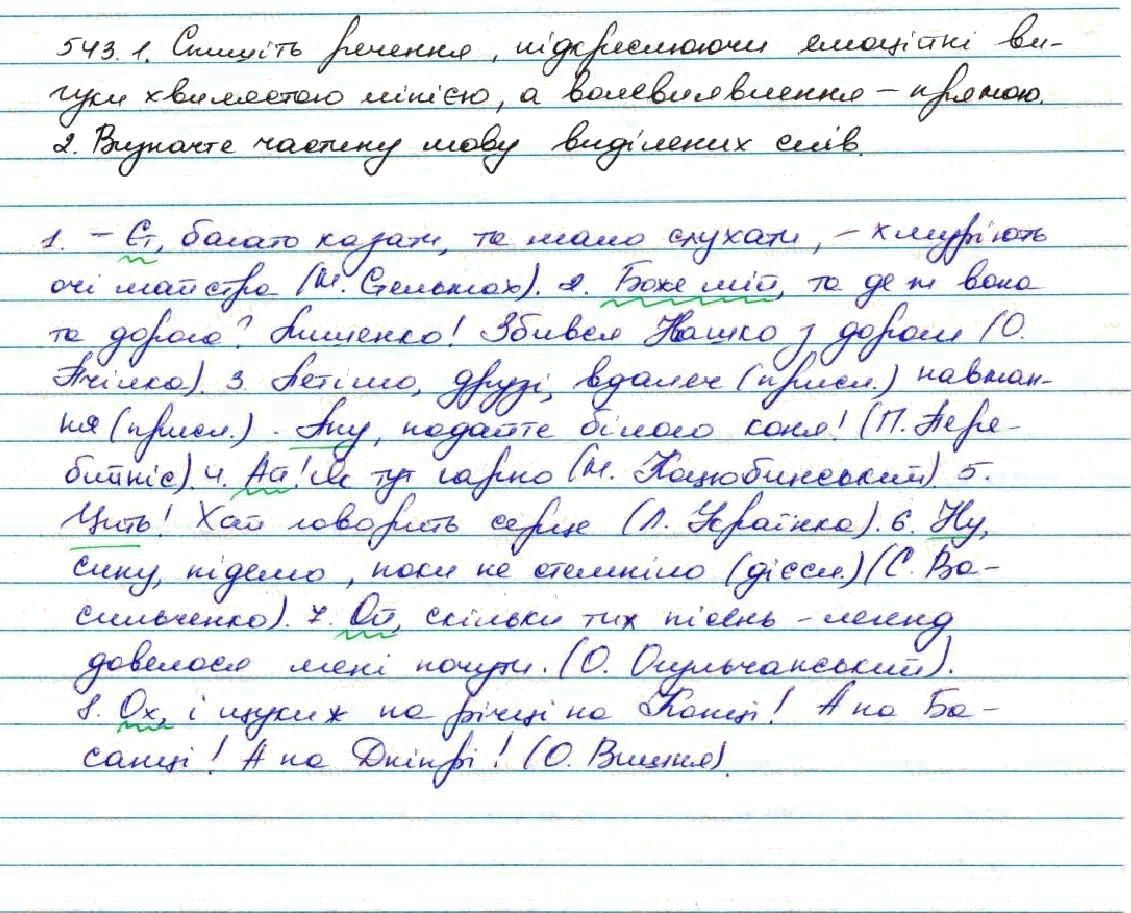 543.1. Спишіть речення, підкреслюючи емоційні ви-
гуки хвилястою лінією, а волевиявлення – прямою.
2. Визначте частину мову виділених слів.
1. – Ет, багато казати, та мало слухати, – хмуріють
очі майстра (М. Стельмах). 2. Боже мій, та де ж вона
та дорога? Лишенько! Збився Ивашко з дороги (О.
Пчілка). 3. Летімо, друзі, вдалеч (присл.) навман-
ня (присл.). Ану, подайте білого коня! (П. Пере-
бийніс). 4. Ай! Як тут гарно (М. Коцюбинський) 5.
Цить! Хай говорить серце (Л. Українка). 6. Ну,
сину, підемо, поки не стемніло (дієсл.) (С. Ва-
сильченко). 7. Ой, скільки тих пісень – легенд
довелося мені почути. (О. Опульчанський).
8. Ох, і щуки ж на річці наКанці! А на Ба-
санці! А на Дніпрі! (О. Вишня).